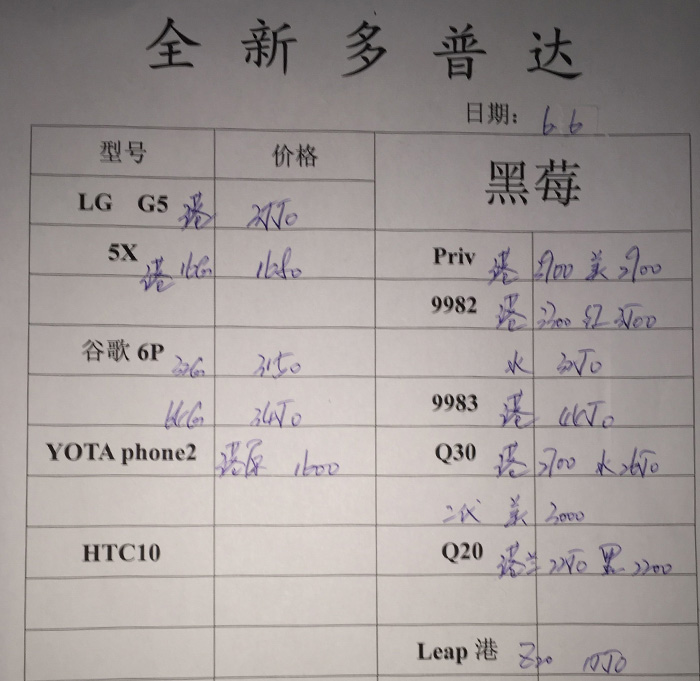 全新多普达
日期: 6.6
型号 价格 黑莓
LG G5 港
5X 港 16G
Priv 港 美 2900
9982 港 3300 红
谷歌 6P 32G 3150
水
64G 3450
9983 港
YOTA phone2 港原 1600
Q30 港 2700 水 2650
二代 美 3000
HTC10
Q20 港 2250 黑 2200
Leap 港 Z20